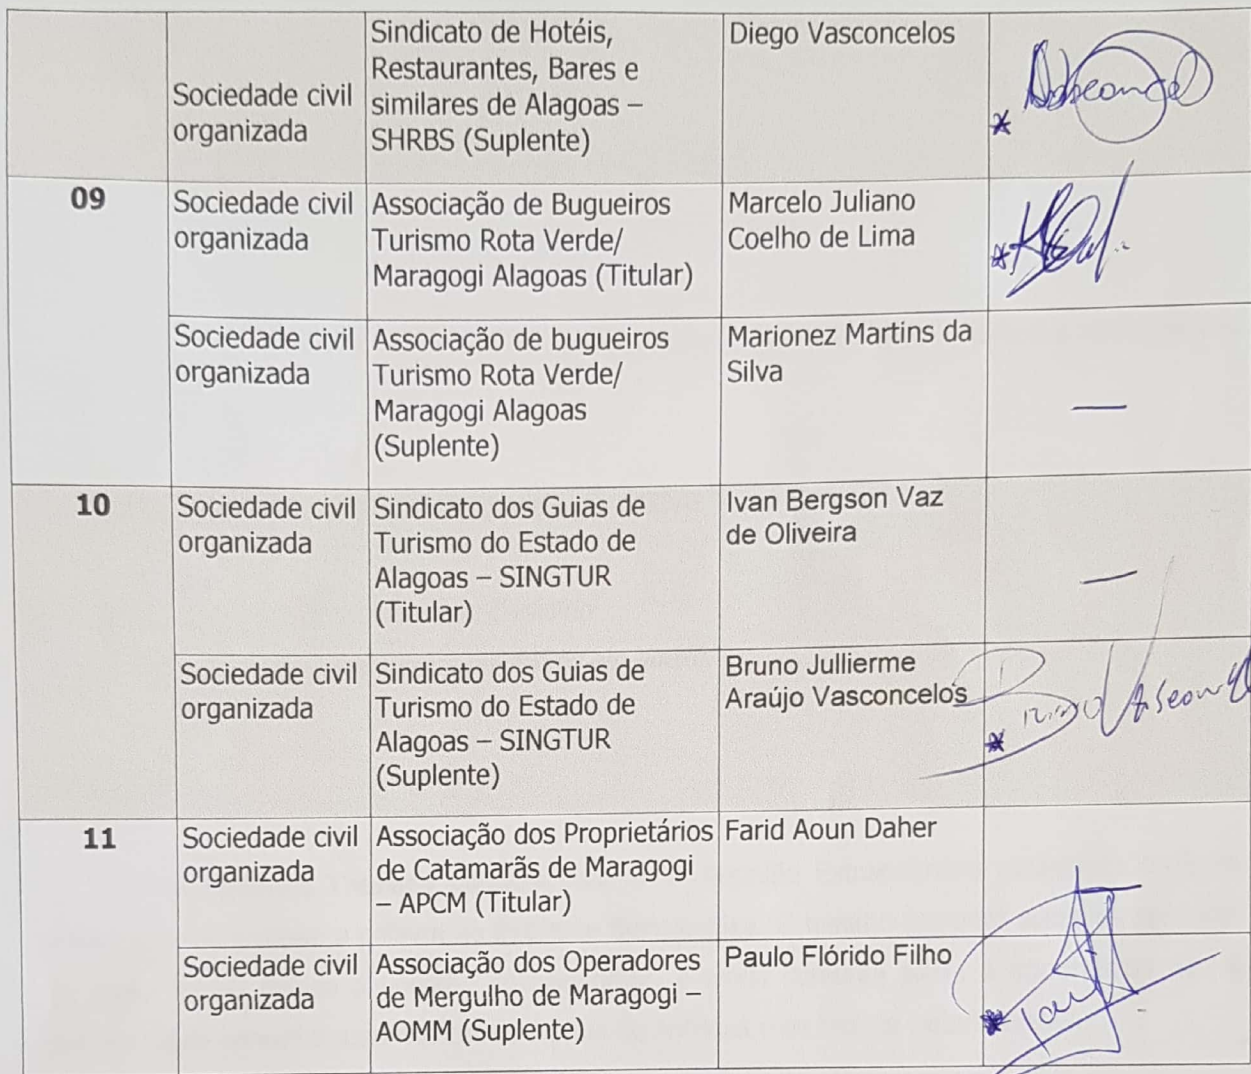 Sindicato de Hotéis,
Restaurantes, Bares e
similares de Alagoas –
SHRBS (Suplente)
Sociedade civil
organizada
Diego Vasconcelos
09
Sociedade civil
organizada
Associação de Bugueiros
Turismo Rota Verde/
Maragogi Alagoas (Titular)
Marcelo Juliano
Coelho de Lima
Sociedade civil
organizada
Associação de bugueiros
Turismo Rota Verde/
Maragogi Alagoas
(Suplente)
Marionez Martins da
Silva
—
10
Sociedade civil
organizada
Sindicato dos Guias de
Turismo do Estado de
Alagoas – SINGTUR
(Titular)
Ivan Bergson Vaz
de Oliveira
—
Sociedade civil
organizada
Sindicato dos Guias de
Turismo do Estado de
Alagoas – SINGTUR
(Suplente)
Bruno Jullierme
Araújo Vasconcelos
11
Sociedade civil
organizada
Associação dos Proprietários
de Catamarãs de Maragogi
– APCM (Titular)
Farid Aoun Daher
Sociedade civil
organizada
Associação dos Operadores
de Mergulho de Maragogi –
AOMM (Suplente)
Paulo Flórido Filho